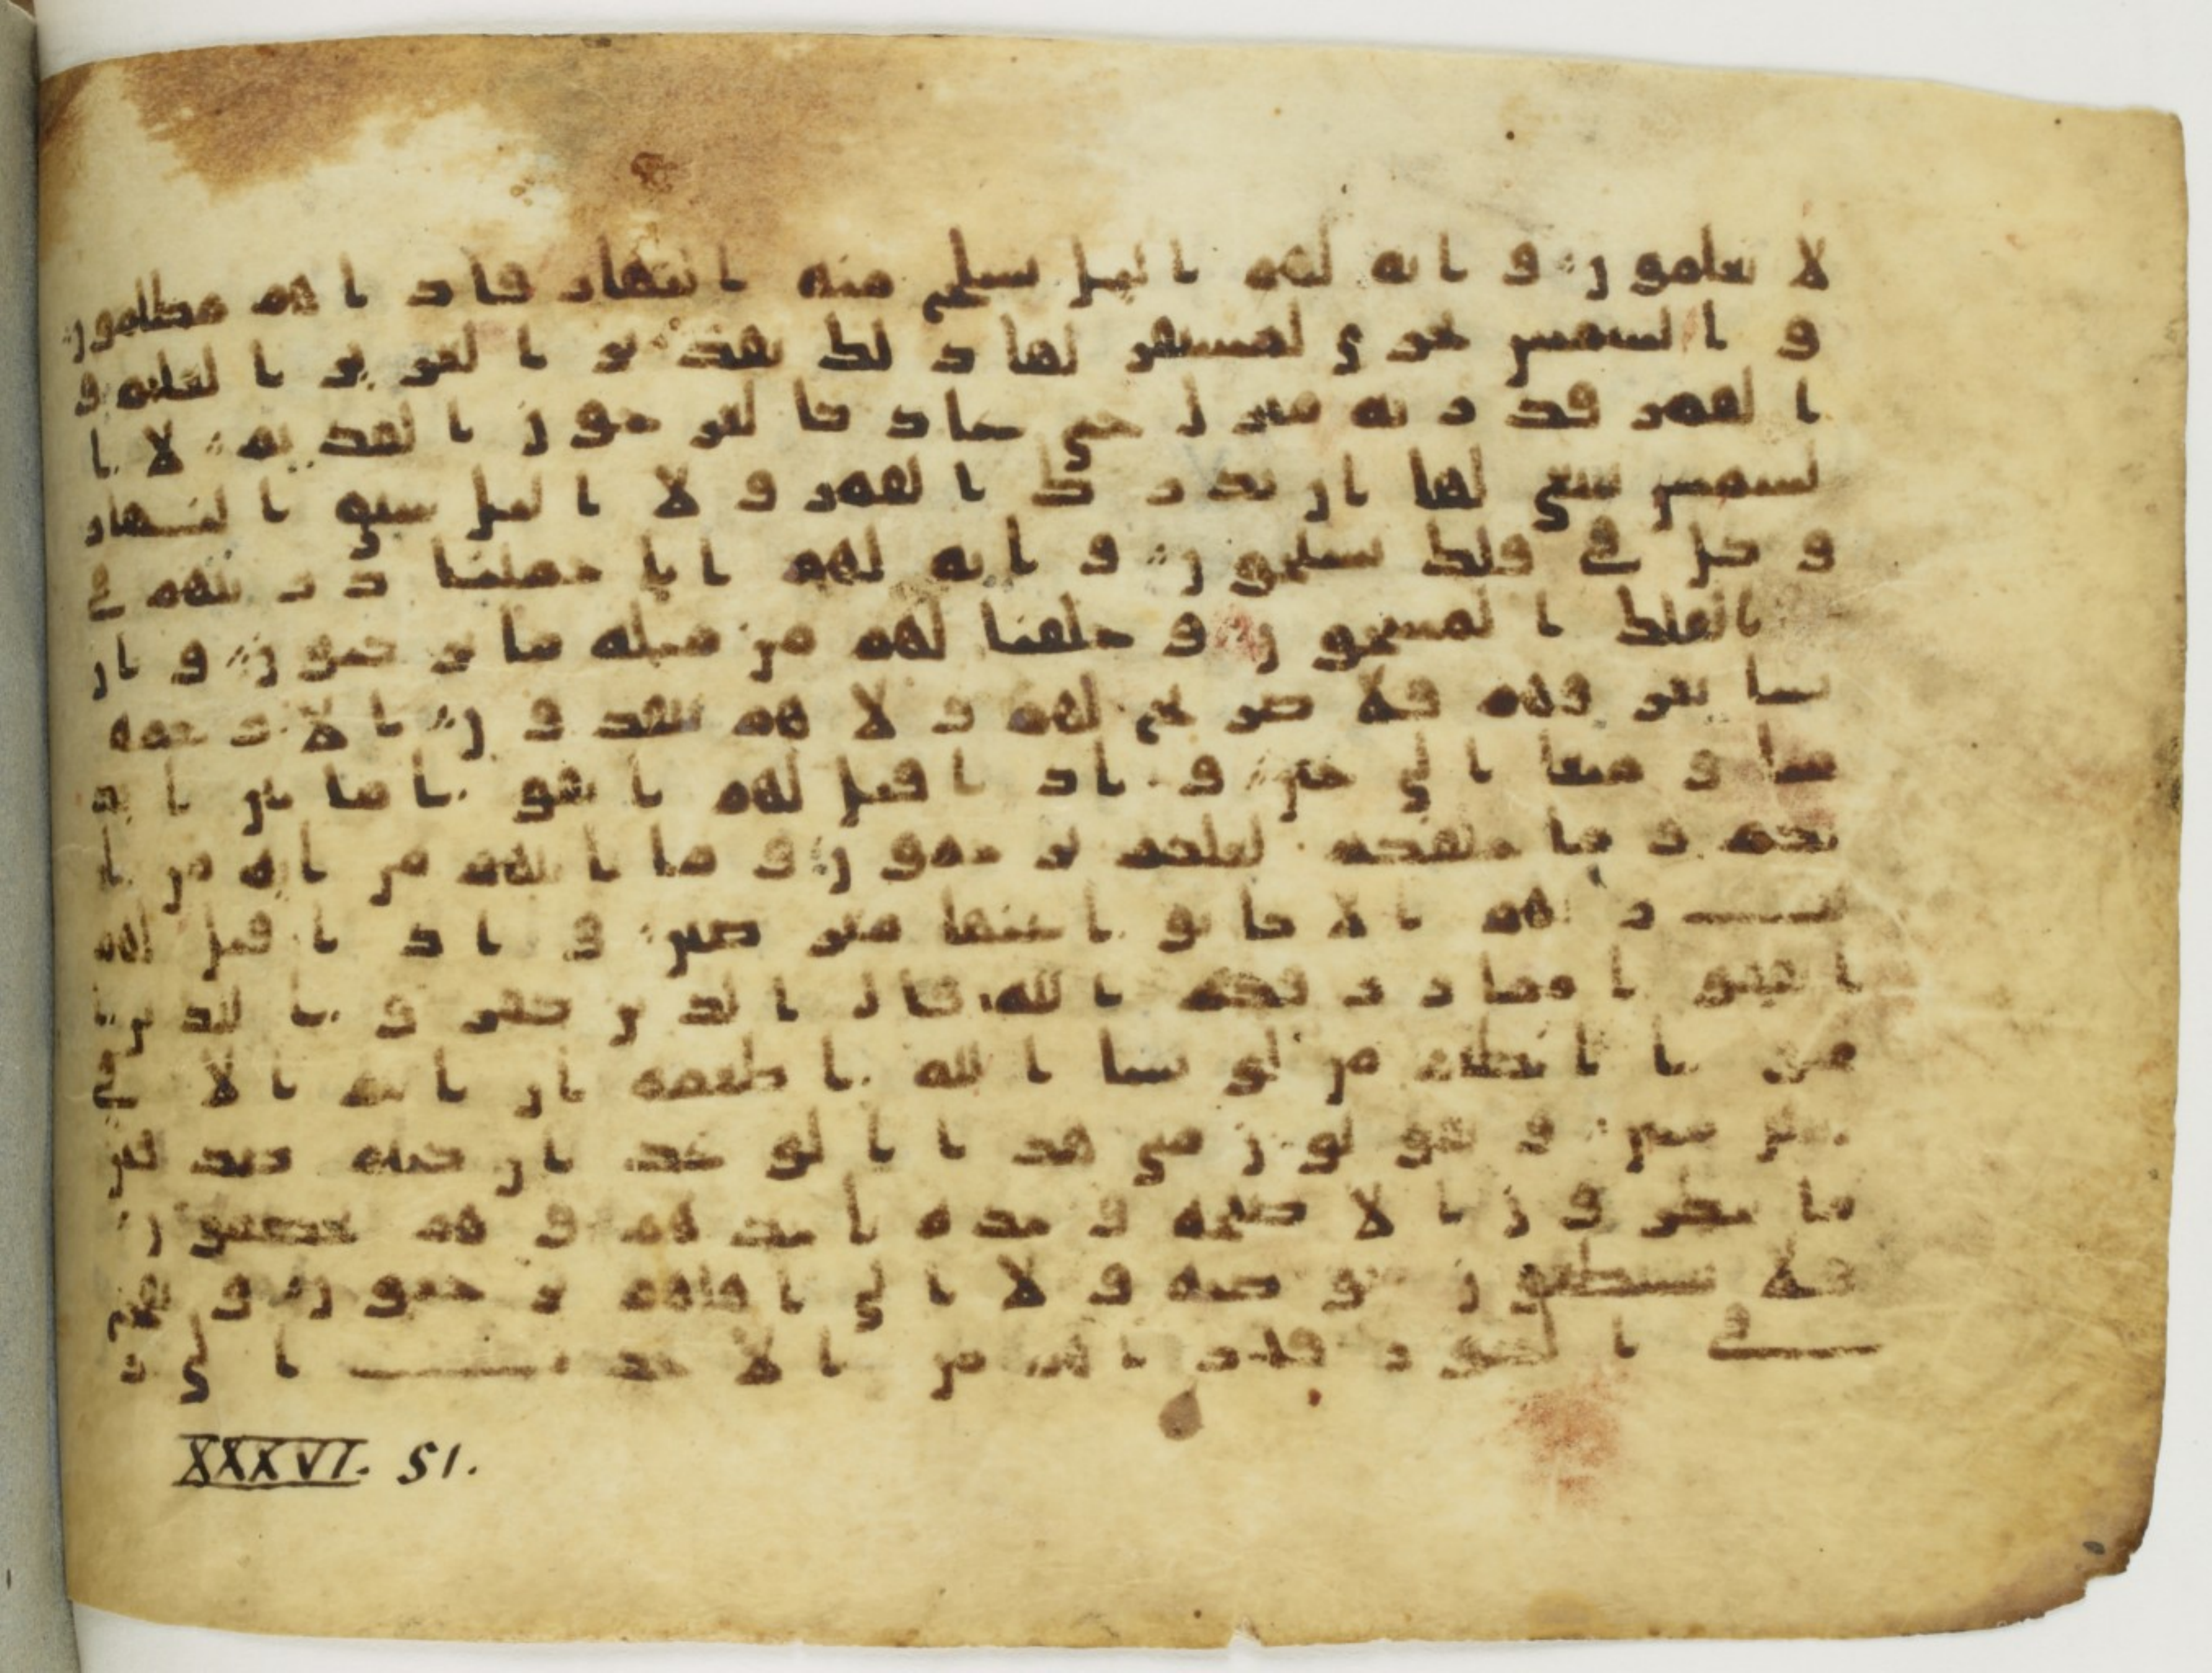 لا يعلمون و اية لهم اليل نسلخ منه النهار فاذا هم مظلمون
و الشمس تجري لمستقر لها ذلك تقدير العزيز العليم و
القمر قدرنه منزل حتى عاد كالعرجون القديم لا ا
لشمس ينبغي لها ان تدرك القمر و لا اليل سبق النهار
و كل في فلك يسبحون و اية لهم انا حملنا ذريتهم في
الفلك المشحون و خلقنا لهم من مثله ما يركبون و ان
نشا نغرقهم فلا صريخ لهم و لا هم ينقذون الا رحمة
منا و متعا الى حين و اذا قيل لهم اتقوا ما بين ايد
يكم و ما خلفكم لعلكم ترحمون و ما تاتيهم من اية من ا
يت ربهم الا كانوا عنها معرضين و اذا قيل لهم
انفقوا مما رزقكم الله قال الذين كفروا للذين ا
منوا انطعم من لو يشا الله اطعمه ان انتم الا في
ضلل مبين و يقولون متى هذا الوعد ان كنتم صدقين
ما ينظرون الا صيحة وحدة تاخذهم و هم يخصمون
فلا يستطيعون توصية و لا الى اهلهم يرجعون و نفخ
في الصور فاذا هم من الاجدث الى ر
XXXVI. 51.